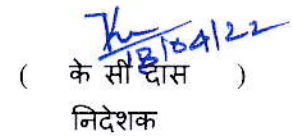 18/04/22
( के सी दास )
निदेशक